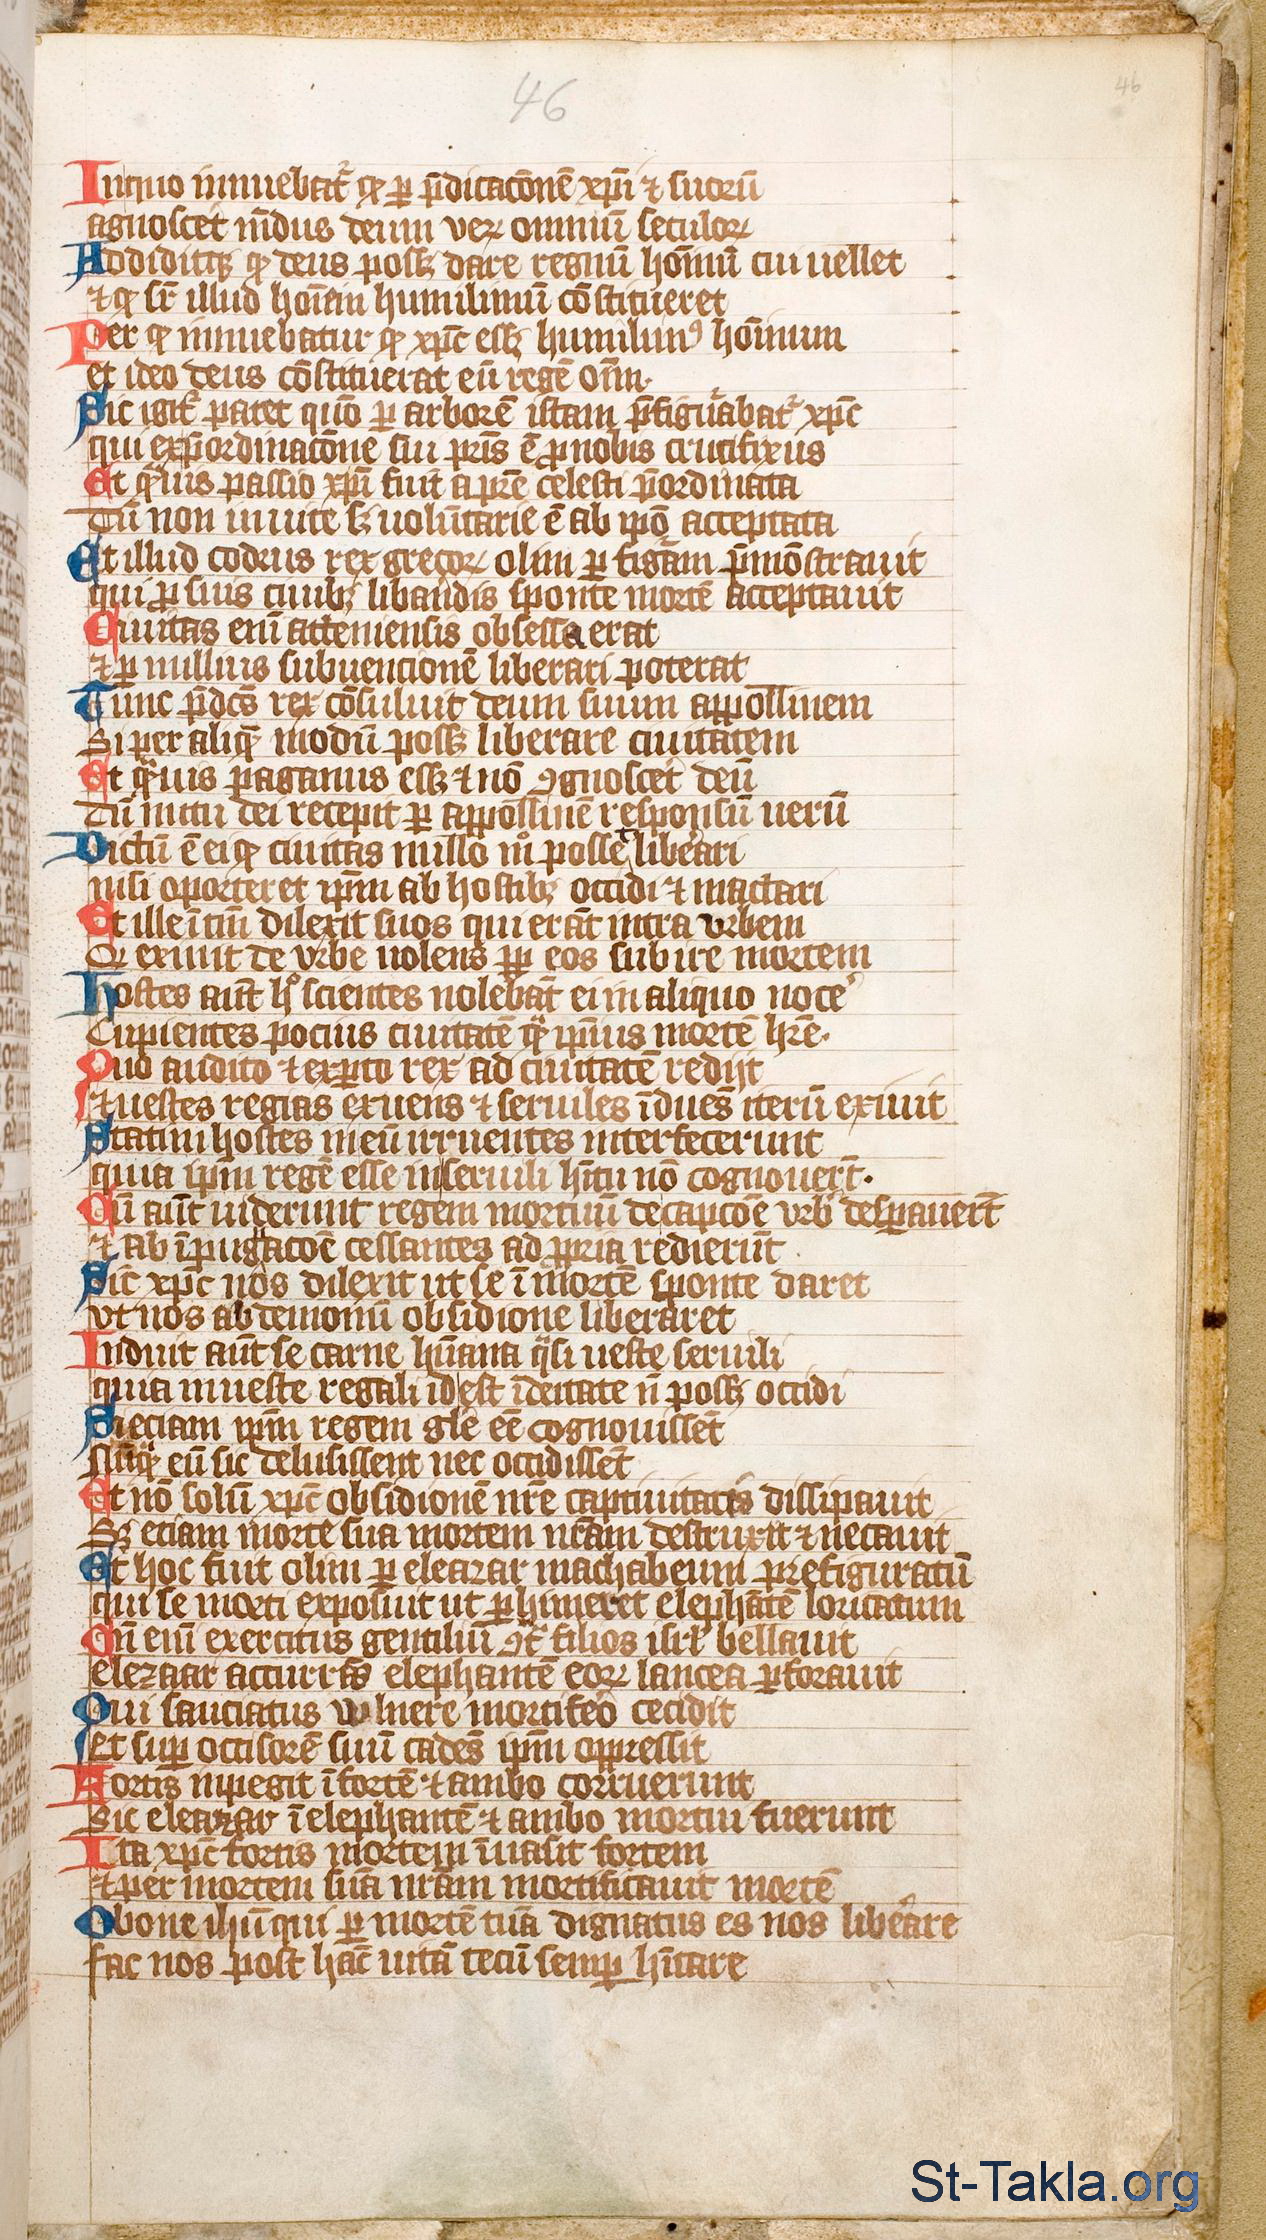 46
46
In quo innuebat᷑ qꝫ ꝑ p̄dicac̄onē xp̄i ⁊ suorū
agnoscet mūdus deum veꝝ omniū seculoꝝ
Addiditqꝫ qꝫ deus possꝫ dare regnū hōīnū cui uellet
⁊ qꝫ sr̄ illud hoīem humilimū cōstitueret
Per qꝫ innuebatur qꝫ xp̄c essꝫ humilimꝰ hōīnum
et ideo deus cōstituerat eū regē oīm.
Sic igit᷑ patet quō ꝑ arborē istam p̄figurabat᷑ xp̄c
qui ex p̄ordinac̄one sui pr̄is ē ꝓ nobis crucifixus
Et qͣ̄uis passio xp̄i fuit a pr̄e celesti p̄ordinata
Tn̄ non inuite sꝫ uolūtarie ē ab ip̄o acceptata
Et illud codrus rex grecoꝝ olim ꝑ figͣam p̄mōstrauit
qui ꝓ suis ciuibꝫ libandis sponte mortē acceptauit
Ciuitas eni atteniensis obsessa erat
⁊ ꝑ nullius subuencionē liberari poterat
Tunc p̄dc̄s rex cōsuluit deum suum appollinem
Si per aliqͫ modū possꝫ liberare ciuitatem
Et qͣ̄uis paganus essꝫ ⁊ nō ꝯgnoscet deū
Tn̄ nutu dei recepit ꝑ appollinē responsū uerū
Dictū ē ei qꝫ ciuitas nullo mͦ posset libeari
nisi oporteret ip̄m ab hostibꝫ occidi ⁊ mactari
Et ille ītm̄ dilexit suos qui erāt intra vrbem
Qꝫ exiuit de vrbe uolens ꝓp eos subire mortem
Hostes aūt hͦ scientes nolebāt ei in aliquo noce
Cupientes pocius ciuitatē qͣ̄ ip̄ius mortē hr̄e.
Quo audito ⁊ exꝑto rex ad ciuitatē redijt
⁊ uestes regias exuens ⁊ seruiles īduēs iterū exiuit
Statim hostes in eū irruentes interfecerunt
quia ip̄m regē esse in seruili hītu nō cognouer̄t.
Cū aūt uiderunt regem mortuū de capc̄oe vrb desꝑauer̄t
⁊ ab īpugac̄oe cessantes ad ꝓpria redierūt
Sic xp̄c nos dilexit ut se ī mortē sponte daret
vt nos ab demonū obsidione liberaret
Induit aūt se carne hūana qͣsi ueste seruili
quia in ueste regali id est ī deitate n̄ possꝫ occidi
Si eciam ip̄m regem gl̄e eē cognouissēt
Nūqͣꝫ eū sic delusissent nec occidissēt
Et nō solū xp̄c obsidionē nr̄e captiuitatis dissipauit
Sꝫ eciam morte sua mortem nr̄am destruxit ⁊ necauit
Et hoc fuit olim ꝑ eleazar machabeum prefiguratū
qui se morti exposuit ut ꝑhimeret elephātē loricatum
Cū eni exercitus gentiliū ꝯͭ filios isrl̄ bellauit
elezaar accurrēs elephantē eoꝝ lancea ꝑforauit
Qui sauciatus vulnere mortifeo cecidit
Et suꝑ occisorē suū cadēs ip̄m oppressit
Fortis inpegit ī fortē ⁊ ambo corruerunt
Sic eleazar ī elephantē ⁊ ambo mortui fuerunt
Ita xp̄c fortis mortem īuasit fortem
⁊ per mortem suā nr̄am mortificauit mortē
O bone ihū qui ꝑ mortē tuā dignatus es nos libeare
fac nos post hāc uitā tecū semꝑ hītare
St-Takla.org